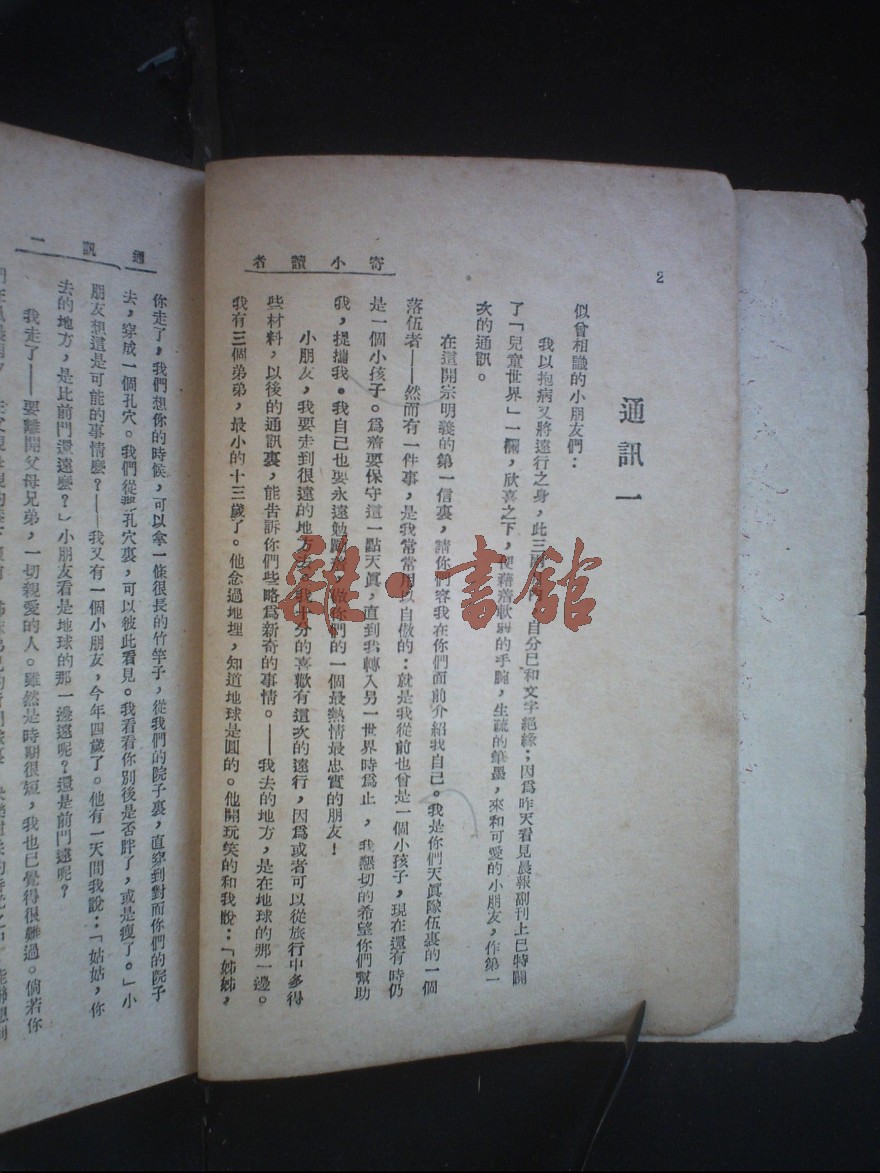 2
寄小讀者
通訊一
似曾相識的小朋友們：
我以抱病又將遠行之身，此三兩 自分已和文字絕緣；因爲昨天看見晨報副刊上已特闢
了「兒童世界」一欄，欣喜之下，便藉着軟弱的手腕，生疏的筆墨，來和可愛的小朋友，作第一
次的通訊。
在這開宗明義的第一信裏，請你們容我在你們面前介紹我自己。我是你們天眞隊伍裏的一個
落伍者——然而有一件事，是我常常用以自傲的：就是我從前也曾是一個小孩子，現在還有時仍
是一個小孩子。爲着要保守這一點天眞，直到我轉入另一世界時爲止，我懇切的希望你們幫助
我，提攜我。我自己也要永遠勉勵着，做你們的一個最熱情最忠實的朋友！
小朋友，我要走到很遠的地方去。我十分的喜歡有這次的遠行，因爲或者可以從旅行中多得
些材料，以後的通訊裏，能告訴你們些略爲新奇的事情。——我去的地方，是在地球的那一邊。
我有三個弟弟，最小的十三歲了。他念過地理，知道地球是圓的。他開玩笑的和我說：「姊姊，
通訊二
你走了，我們想你的時候，可以拿一條很長的竹竿子，從我們的院子裏，直穿到對面你們的院子
去，穿成一個孔穴。我們從那孔穴裏，可以彼此看見。我看看你別後是否胖了，或是瘦了。」小
朋友想這是可能的事情麼？——我又有一個小朋友，今年四歲了。他有一天問我說：「姑姑，你
去的地方，是比前門還遠麼？」小朋友看是地球的那一邊遠呢？還是前門遠呢？
我走了——要離開父母兄弟，一切親愛的人。雖然是時期很短，我也已覺得很難過。倘若你
雜·書館